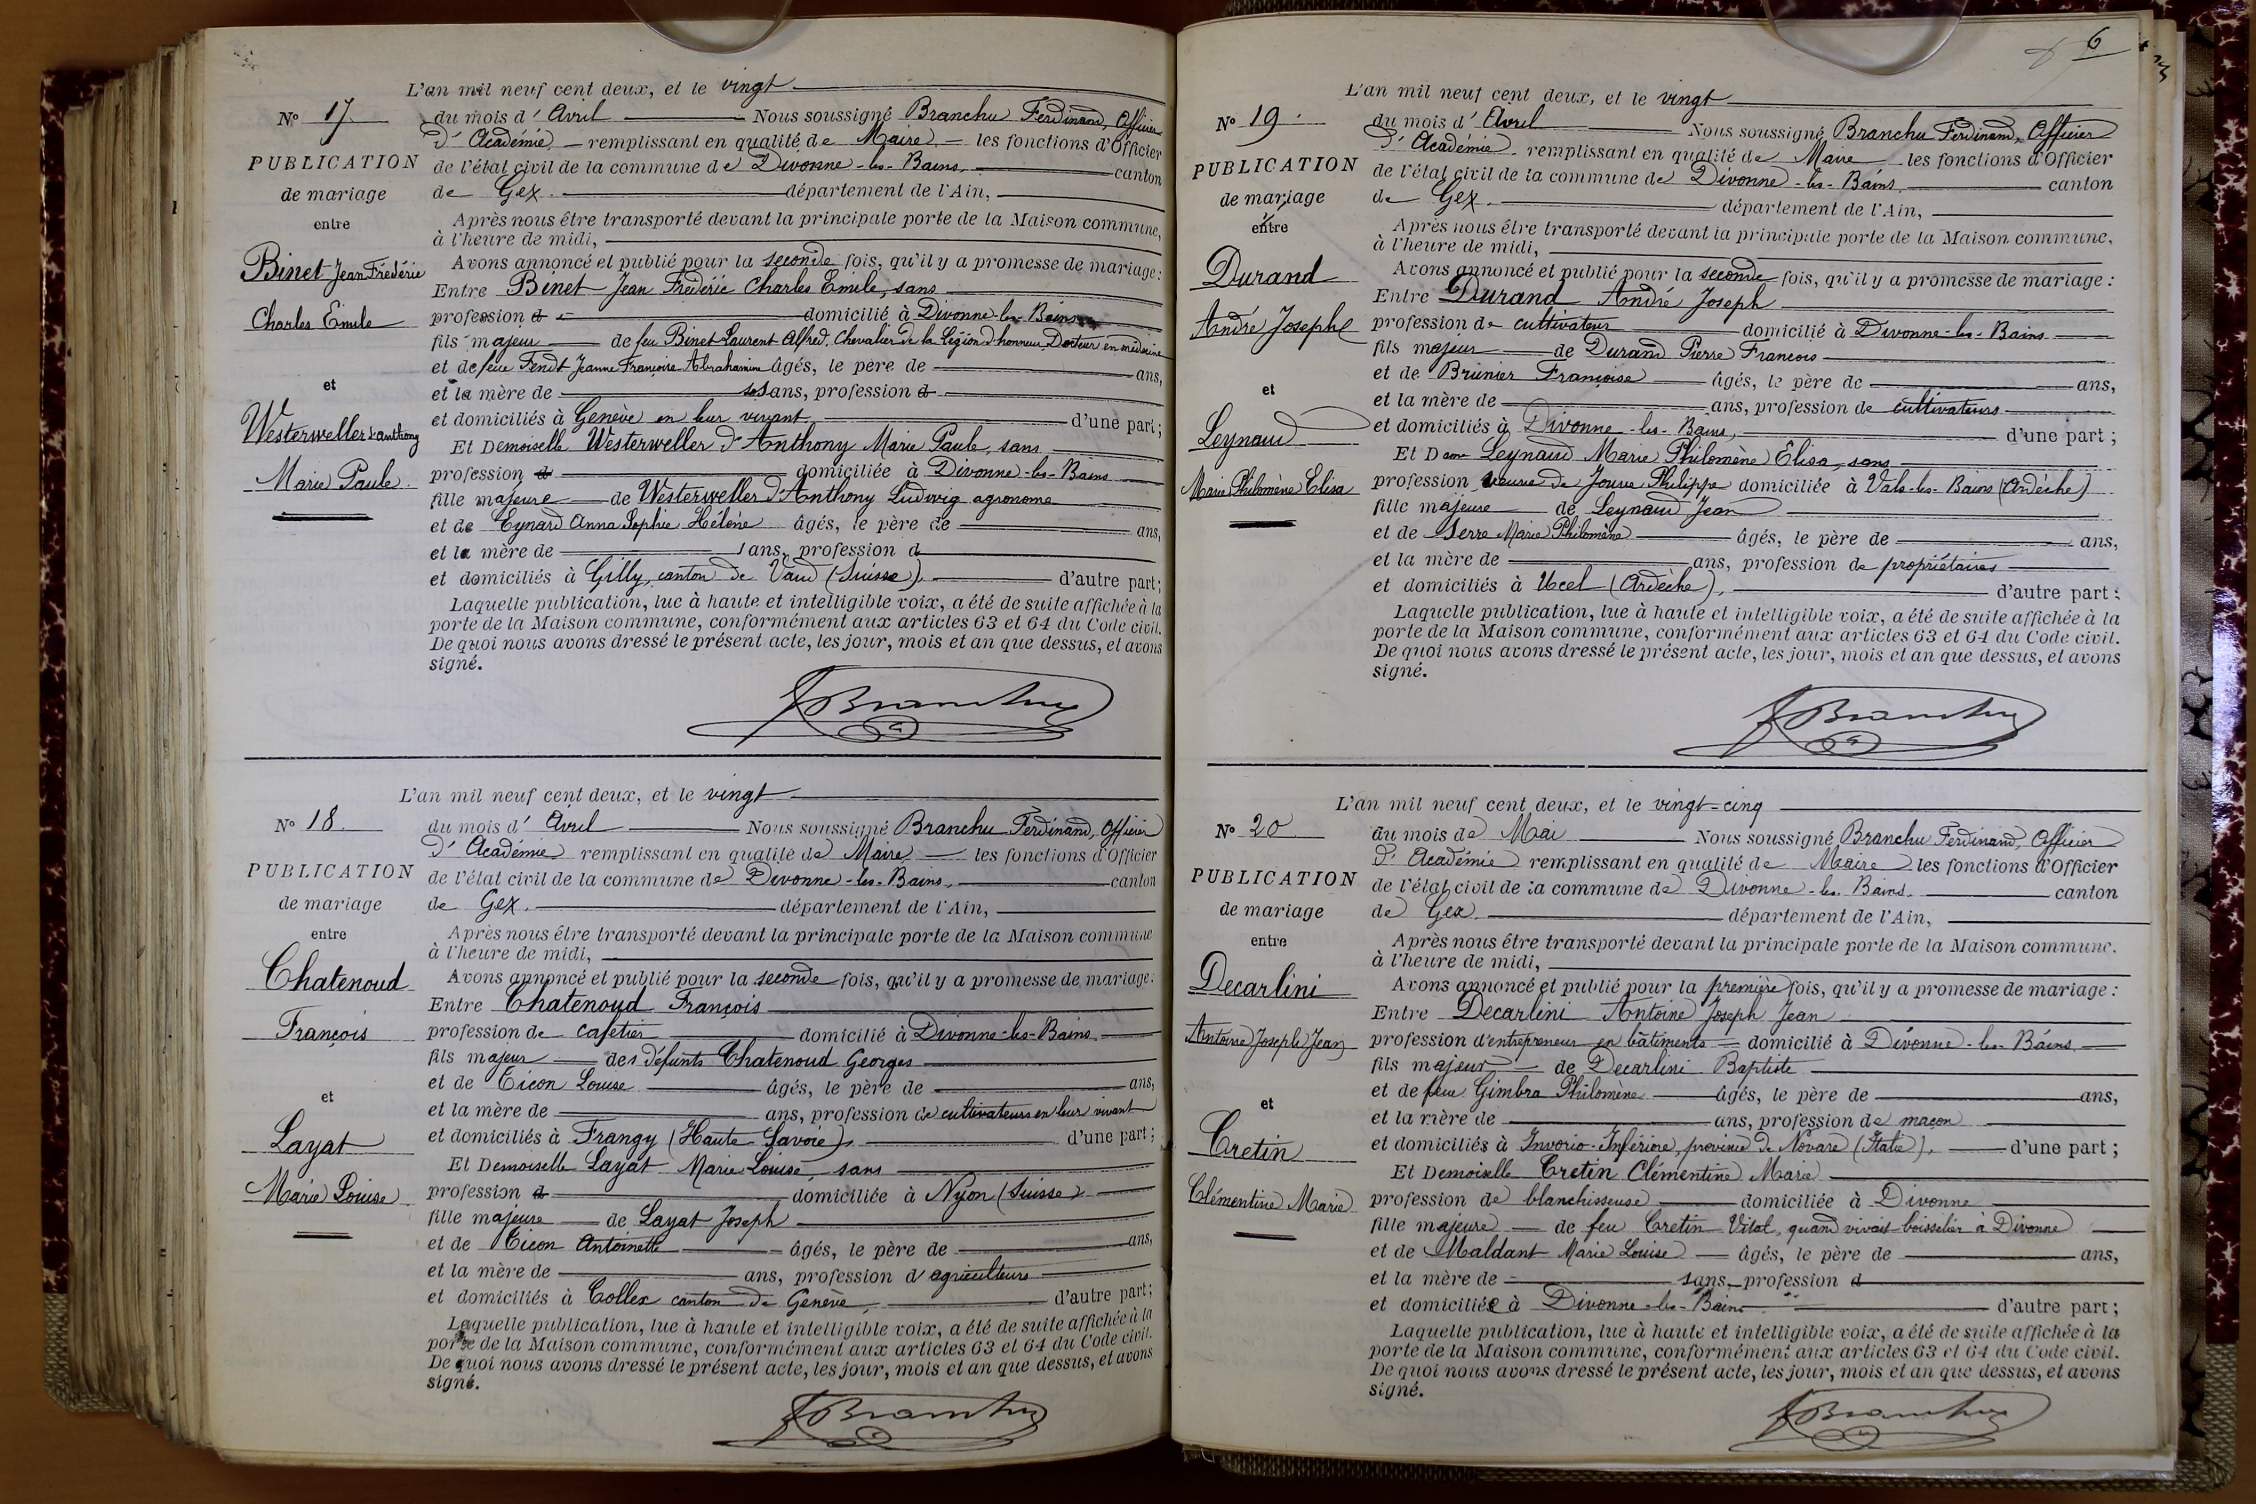 L'an mil neuf cent deux, et le vingt
N° 17.
du mois d'Avril Nous soussigné Branchu Ferdinand, Officier
d'Académie remplissant en qualité de Maire les fonctions d'Officier
PUBLICATION
de l'état civil de la commune de Divonne-les-Bains, canton
de mariage
de Gex. département de l'Ain,
entre
Après nous être transporté devant la principale porte de la Maison commune,
à l'heure de midi,
Binet Jean Frédéric
Avons annoncé et publié pour la seconde fois, qu'il y a promesse de mariage :
Entre Binet Jean Frédéric Charles Emile, sans
Charles Emile
profession d domicilié à Divonne-les-Bains
fils majeur de feu Binet Laurent Alfred, Chevalier de la Légion d'honneur, Docteur en médecine
et de feue Fendt Jeanne Françoise Abrahamine âgés, le père de ans,
et
et la mère de ans, profession d
et domiciliés à Genève en leur vivant d'une part ;
Westerweller d'anthony
Et Demoiselle Westerweller d'Anthony Marie Paule, sans
Marie Paule.
profession d domiciliée à Divonne-les-Bains
fille majeure de Westerweller d'Anthony Ludwig agronome
et de Eynard Anna Sophie Hélène âgés, le père de ans,
et la mère de ans, profession d
et domiciliés à Gilly, canton de Vaud (Suisse). d'autre part ;
Laquelle publication, lue à haute et intelligible voix, a été de suite affichée à la
porte de la Maison commune, conformément aux articles 63 et 64 du Code civil.
De quoi nous avons dressé le présent acte, les jour, mois et an que dessus, et avons
signé.
FBranchu
L'an mil neuf cent deux, et le vingt
N° 18.
du mois d'Avril Nous soussigné Branchu Ferdinand, Officier
d'Académie remplissant en qualité de Maire les fonctions d'Officier
PUBLICATION
de l'état civil de la commune de Divonne-les-Bains, canton
de mariage
de Gex. département de l'Ain,
entre
Après nous être transporté devant la principale porte de la Maison commune
à l'heure de midi,
Chatenoud
Avons annoncé et publié pour la seconde fois, qu'il y a promesse de mariage :
Entre Chatenoud François
François
profession de cafetier domicilié à Divonne-les-Bains
fils majeur des défunts Chatenoud Georges
et de Cicon Louise âgés, le père de ans,
et
et la mère de ans, profession de cultivateurs en leur vivant
et domiciliés à Frangy (Haute Savoie), d'une part ;
Layat
Et Demoiselle Layat Marie Louise, sans
Marie Louise
profession d domiciliée à Nyon (Suisse)
fille majeure de Layat Joseph
et de Cicon Antoinette âgés, le père de ans,
et la mère de ans, profession d'agriculteurs
et domiciliés à Collex canton de Genève, d'autre part ;
Laquelle publication, lue à haute et intelligible voix, a été de suite affichée à la
porte de la Maison commune, conformément aux articles 63 et 64 du Code civil.
De quoi nous avons dressé le présent acte, les jour, mois et an que dessus, et avons
signé.
FBranchu
6
L'an mil neuf cent deux, et le vingt
N° 19.
du mois d'Avril Nous soussigné Branchu Ferdinand, Officier
d'Académie remplissant en qualité de Maire les fonctions d'Officier
PUBLICATION
de l'état civil de la commune de Divonne-les-Bains, canton
de mariage
de Gex. département de l'Ain,
entre
Après nous être transporté devant la principale porte de la Maison commune,
à l'heure de midi,
Durand
Avons annoncé et publié pour la seconde fois, qu'il y a promesse de mariage :
Entre Durand André Joseph
André Joseph
profession de cultivateur domicilié à Divonne-les-Bains
fils majeur de Durand Pierre François
et de Brunier Françoise âgés, le père de ans,
et
et la mère de ans, profession de cultivateurs
et domiciliés à Divonne-les-Bains, d'une part ;
Leynaud
Et Dame Leynaud Marie Philomène Elisa, sans
Marie Philomène Elisa
profession veuve de Jouve Philippe domiciliée à Vals-les-Bains (Ardèche)
fille majeure de Leynaud Jean
et de Serre Marie Philomène âgés, le père de ans,
et la mère de ans, profession de propriétaires
et domiciliés à Ucel (Ardèche), d'autre part :
Laquelle publication, lue à haute et intelligible voix, a été de suite affichée à la
porte de la Maison commune, conformément aux articles 63 et 64 du Code civil.
De quoi nous avons dressé le présent acte, les jour, mois et an que dessus, et avons
signé.
FBranchu
L'an mil neuf cent deux, et le vingt-cinq
N° 20
du mois de Mai Nous soussigné Branchu Ferdinand, Officier
d'Académie remplissant en qualité de Maire les fonctions d'Officier
PUBLICATION
de l'état civil de la commune de Divonne-les-Bains. canton
de mariage
de Gex. département de l'Ain,
entre
Après nous être transporté devant la principale porte de la Maison commune.
à l'heure de midi,
Decarlini
Avons annoncé et publié pour la première fois, qu'il y a promesse de mariage :
Entre Decarlini Antoine Joseph Jean
Antoine Joseph Jean
profession d'entrepreneur en bâtiments domicilié à Divonne-les-Bains
fils majeur de Decarlini Baptiste
et de feue Gimbra Philomène âgés, le père de ans,
et
et la mère de ans, profession de maçon
et domiciliés à Invorio-Infériore, province de Novare (Italie). d'une part ;
Cretin
Et Demoiselle Cretin Clémentine Marie
Clémentine Marie
profession de blanchisseuse domiciliée à Divonne
fille majeure de feu Cretin Vital, quand vivait boisselier à Divonne
et de Maldant Marie Louise âgés, le père de ans,
et la mère de sans profession d
et domiciliée à Divonne-les-Bains d'autre part ;
Laquelle publication, lue à haute et intelligible voix, a été de suite affichée à la
porte de la Maison commune, conformément aux articles 63 et 64 du Code civil.
De quoi nous avons dressé le présent acte, les jour, mois et an que dessus, et avons
signé.
FBranchu